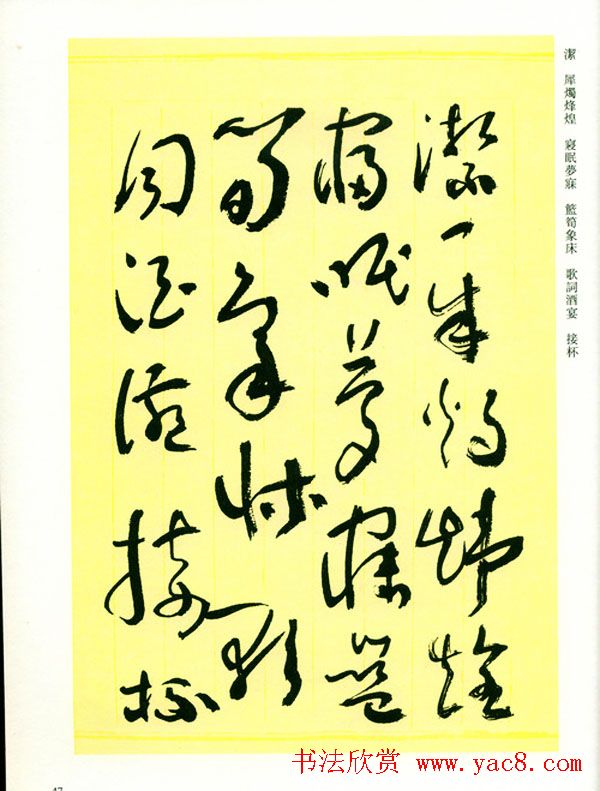 潔　犀燭烽煌　寢眠夢寐　籃筍象床　歌詞酒宴　接杯
潔犀燭烽煌
寢眠夢寐籃
筍象床歌
詞酒宴接杯
47
书法欣赏 www.yac8.com